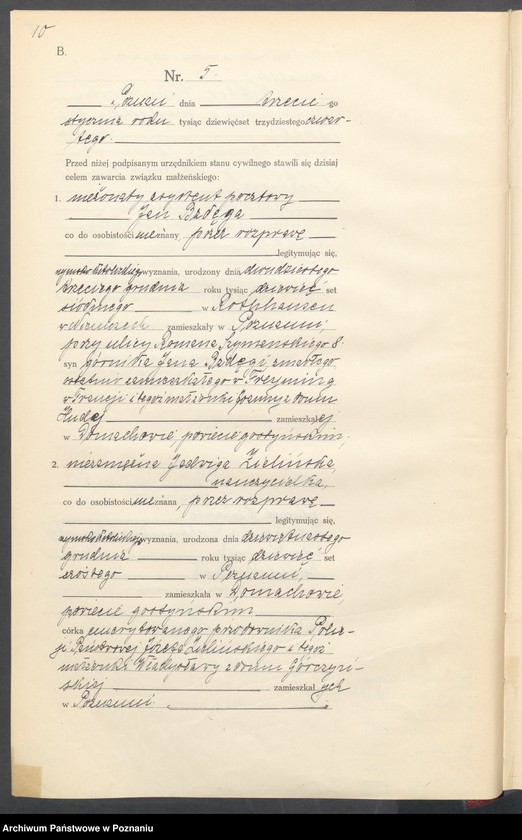 10
B.
Nr. 5.
Poznań dnia trzeciego
stycznia roku tysiąc dziewięćset trzydziestego czwar-
tego.
Przed niżej podpisanym urzędnikiem stanu cywilnego stawili się dzisiaj
celem zawarcia związku małżeńskiego:
1. nieżonaty asystent pocztowy
Jan
co do osobistości nieznany, przez rozprawę
legitymując się,
rzymsko katolickiego wyznania, urodzony dnia dwudziestego
trzeciego grudnia roku tysiąc dziewięć set
siódmego w Rotthausen
w Niemczech zamieszkały w Poznaniu,
przy ulicy Romana Szymańskiego 8
syn górnika Jana zmarłego,
ostatnio zamieszkałego w Freyming
w Francji i tegoż małżonki z domu
zamieszkałej
w Domachowie, powiecie gostyńskim,
2. niezamężna Jadwiga Zielińska,
nauczycielka,
co do osobistości nieznana, przez rozprawę
legitymując się,
rzymsko katolickiego wyznania, urodzona dnia dziewiętnastego
grudnia roku tysiąc dziewięć set
szóstego w Poznaniu,
zamieszkała w Domachowie,
powiecie gostyńskim
córka emerytowanego przodownika Polic-
ji Państwowej Józefa Zielińskiego i tegoż
małżonki Władysławy z domu Górczyń-
skiej zamieszkałych
w Poznaniu.
Archiwum Państwowe w Poznaniu